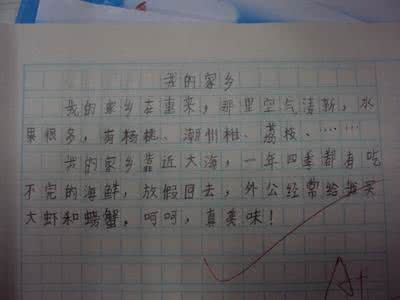 我的家乡
我的家乡在重来，那里空气清新，水
果很多，有杨桃、潮州柑、荔枝、……
我的家乡靠近大海，一年四季都有吃
不完的海鲜，放假回去，外公经常给我买
大虾和螃蟹，呵呵，真美味！
A+